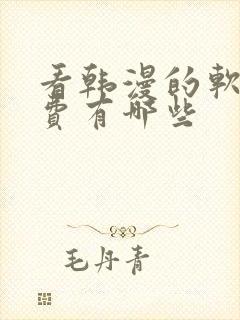 看韩漫的軟
費有哪些
毛丹青